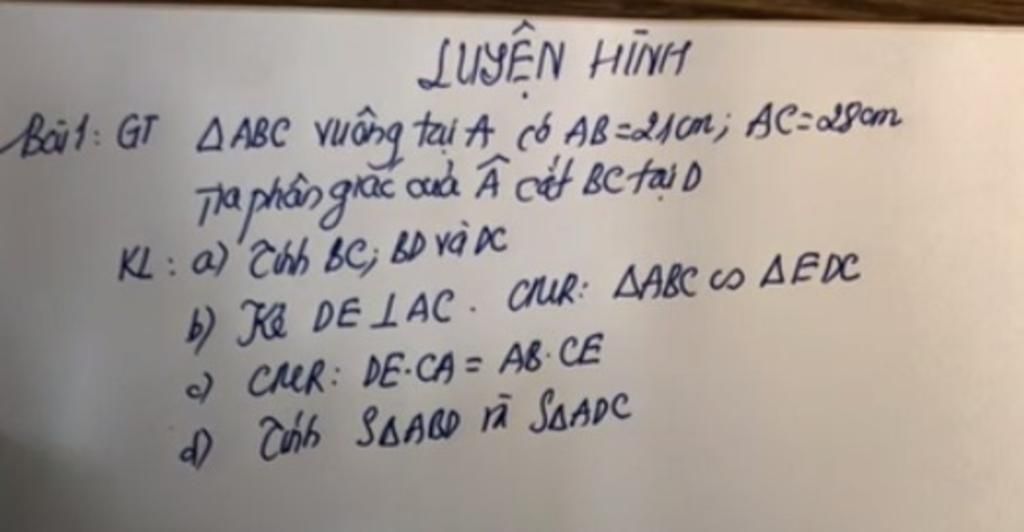 LUYỆN HÌNH
Bài 1: GT ΔABC vuông tại A có AB = 21cm; AC = 28cm
Tia phân giác của Â cắt BC tại D
KL: a) Tính BC; BD và DC
b) Kẻ DE ⊥ AC. CMR: ΔABC ∽ ΔEDC
c) CMR: DE.CA = AB.CE
d) Tính SΔABD và SΔADC